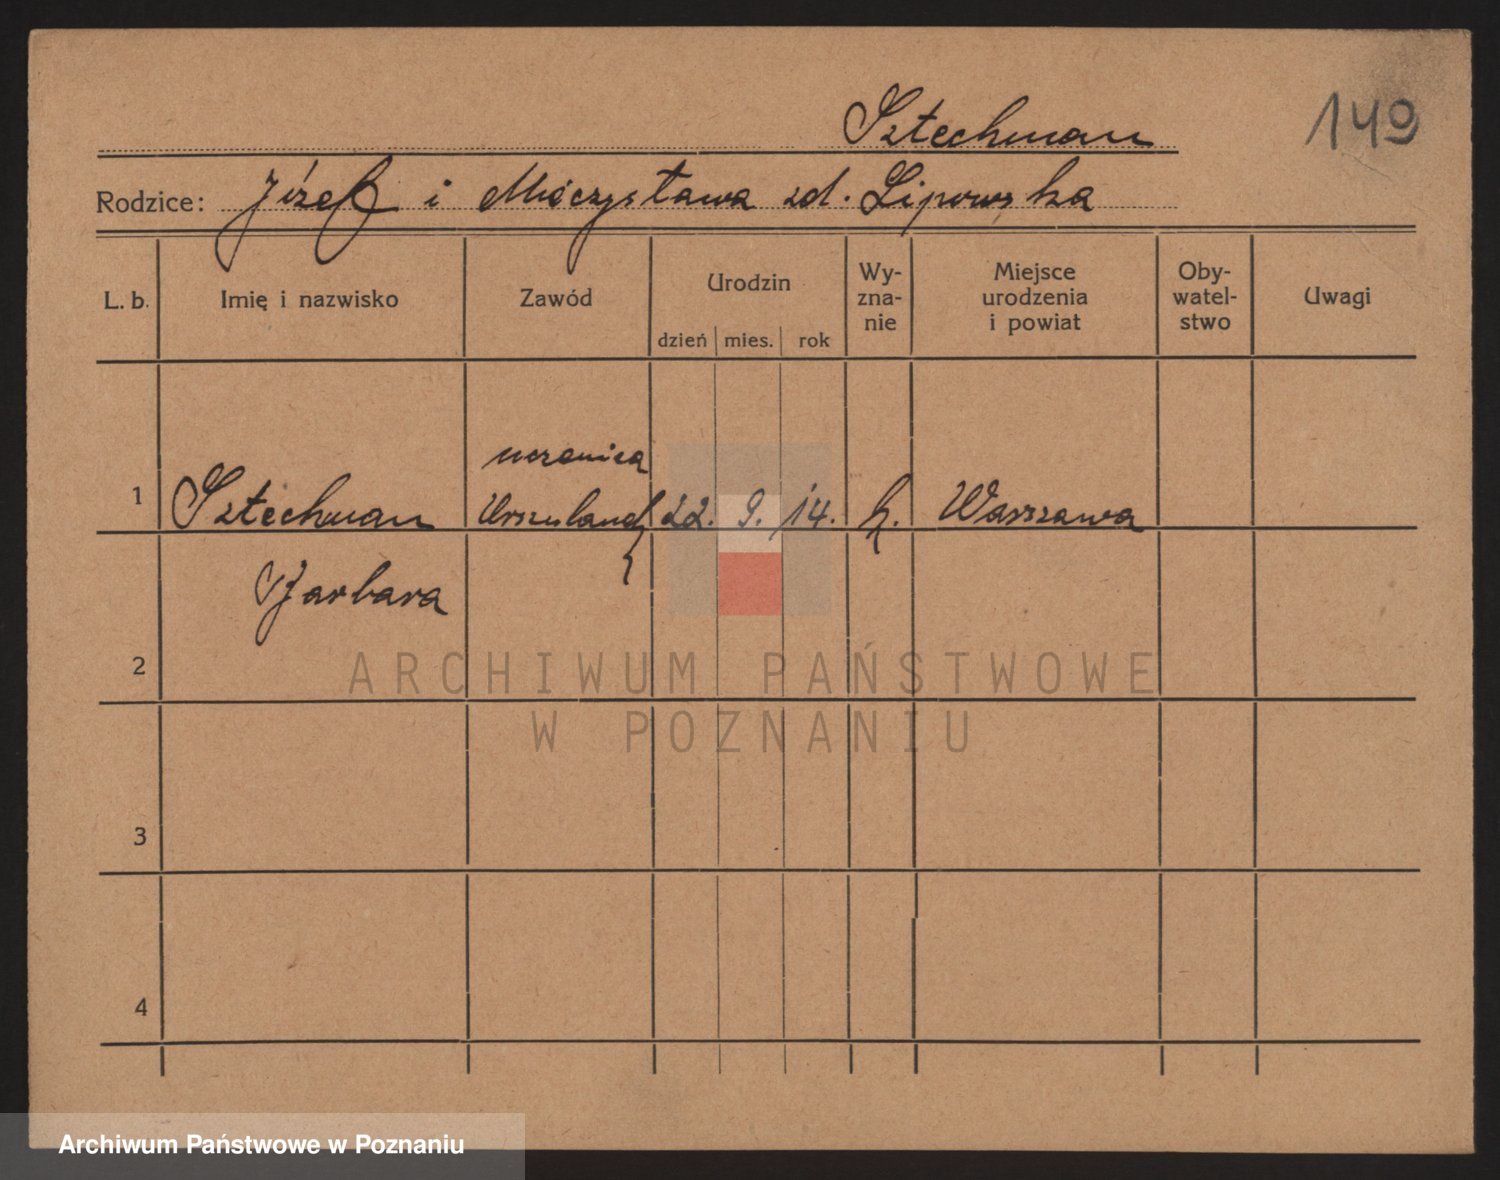 Sztechman
149
Rodzice: Józef i Mieczysława zd. Lipowska
L. b. Imię i nazwisko Zawód Urodzin Wy-zna-nie Miejsce urodzenia i powiat Oby-watel-stwo Uwagi
dzień mies. rok
uczenica
1 Sztechman 22. 9. 14. k. Warszawa
Barbara
2
ARCHIWUM PAŃSTWOWE
W POZNANIU
3
4
Archiwum Państwowe w Poznaniu